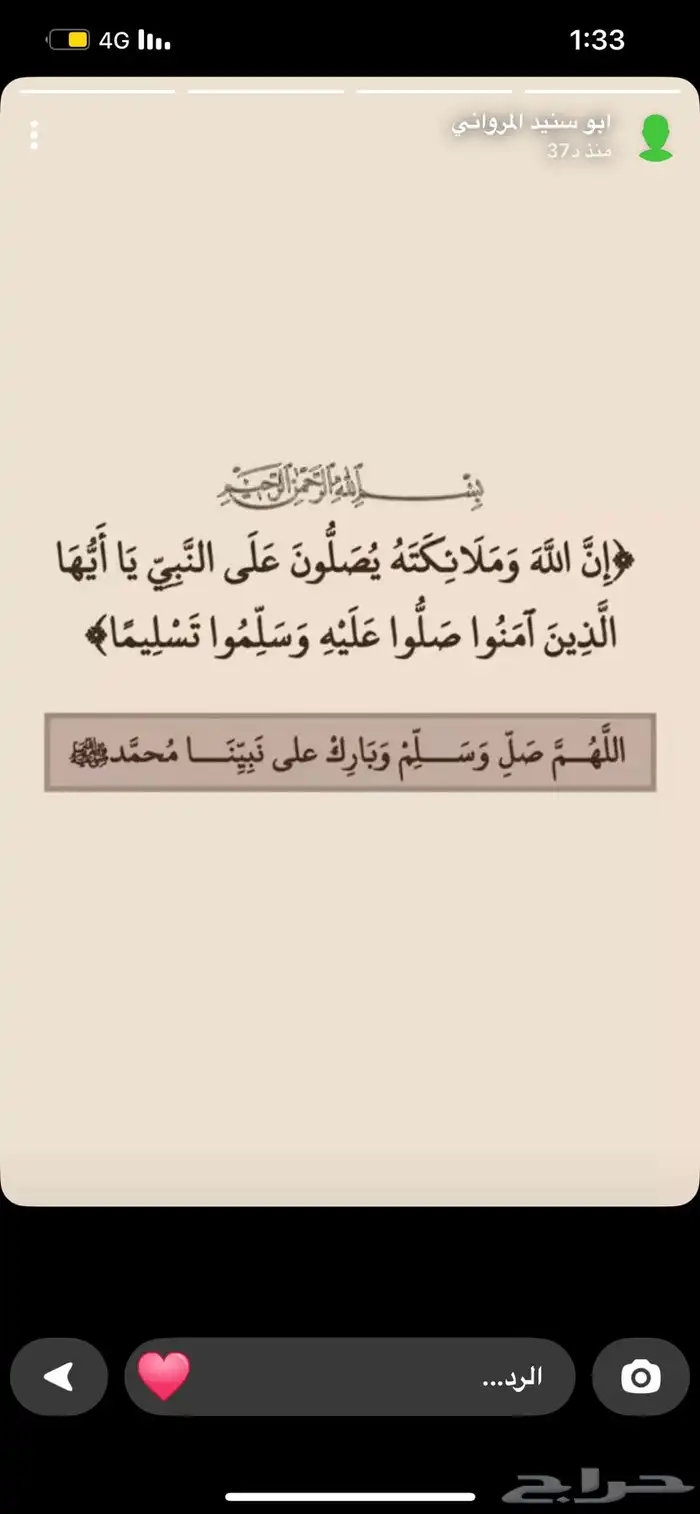 4G 1:33
ابو سنيد المرواني
منذ 37د
بِسْمِ اللَّهِ الرَّحْمَٰنِ الرَّحِيمِ
﴿إِنَّ اللَّهَ وَمَلَائِكَتَهُ يُصَلُّونَ عَلَى النَّبِيِّ يَا أَيُّهَا
الَّذِينَ آمَنُوا صَلُّوا عَلَيْهِ وَسَلِّمُوا تَسْلِيمًا﴾
اللَّهُـــمَّ صَلِّ وَسَـــلِّمْ وَبَارِكْ على نَبِيِّنَـــا مُحمَّدﷺ
الرد...
حراج